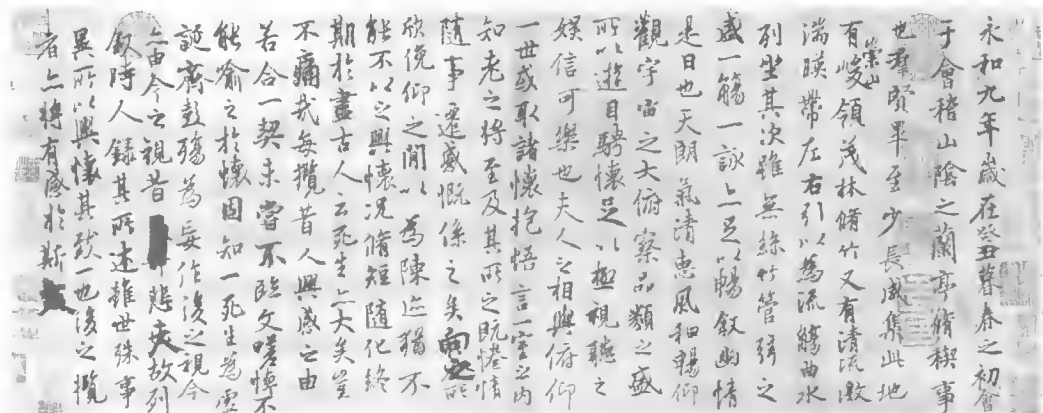 永和九年歲在癸丑暮春之初會
于會稽山陰之蘭亭脩稧事
也羣賢畢至少長咸集此地
有崇山峻領茂林脩竹又有清流激
湍暎帶左右引以為流觴曲水
列坐其次雖無絲竹管弦之
盛一觴一詠亦足以暢敘幽情
是日也天朗氣清惠風和暢仰
觀宇宙之大俯察品類之盛
所以遊目騁懷足以極視聽之
娛信可樂也夫人之相與俯仰
一世或取諸懷抱悟言一室之內
知老之將至及其所之既惓情
隨事遷感慨係之矣向之所
欣俛仰之閒以為陳迹猶不
能不以之興懷況脩短隨化終
期於盡古人云死生亦大矣豈
不痛哉每攬昔人興感之由
若合一契未嘗不臨文嗟悼不
能喻之於懷固知一死生為虛
誕齊彭殤為妄作後之視今
亦由今之視昔悲夫故列
敘時人錄其所述雖世殊事
異所以興懷其致一也後之攬
者亦將有感於斯文